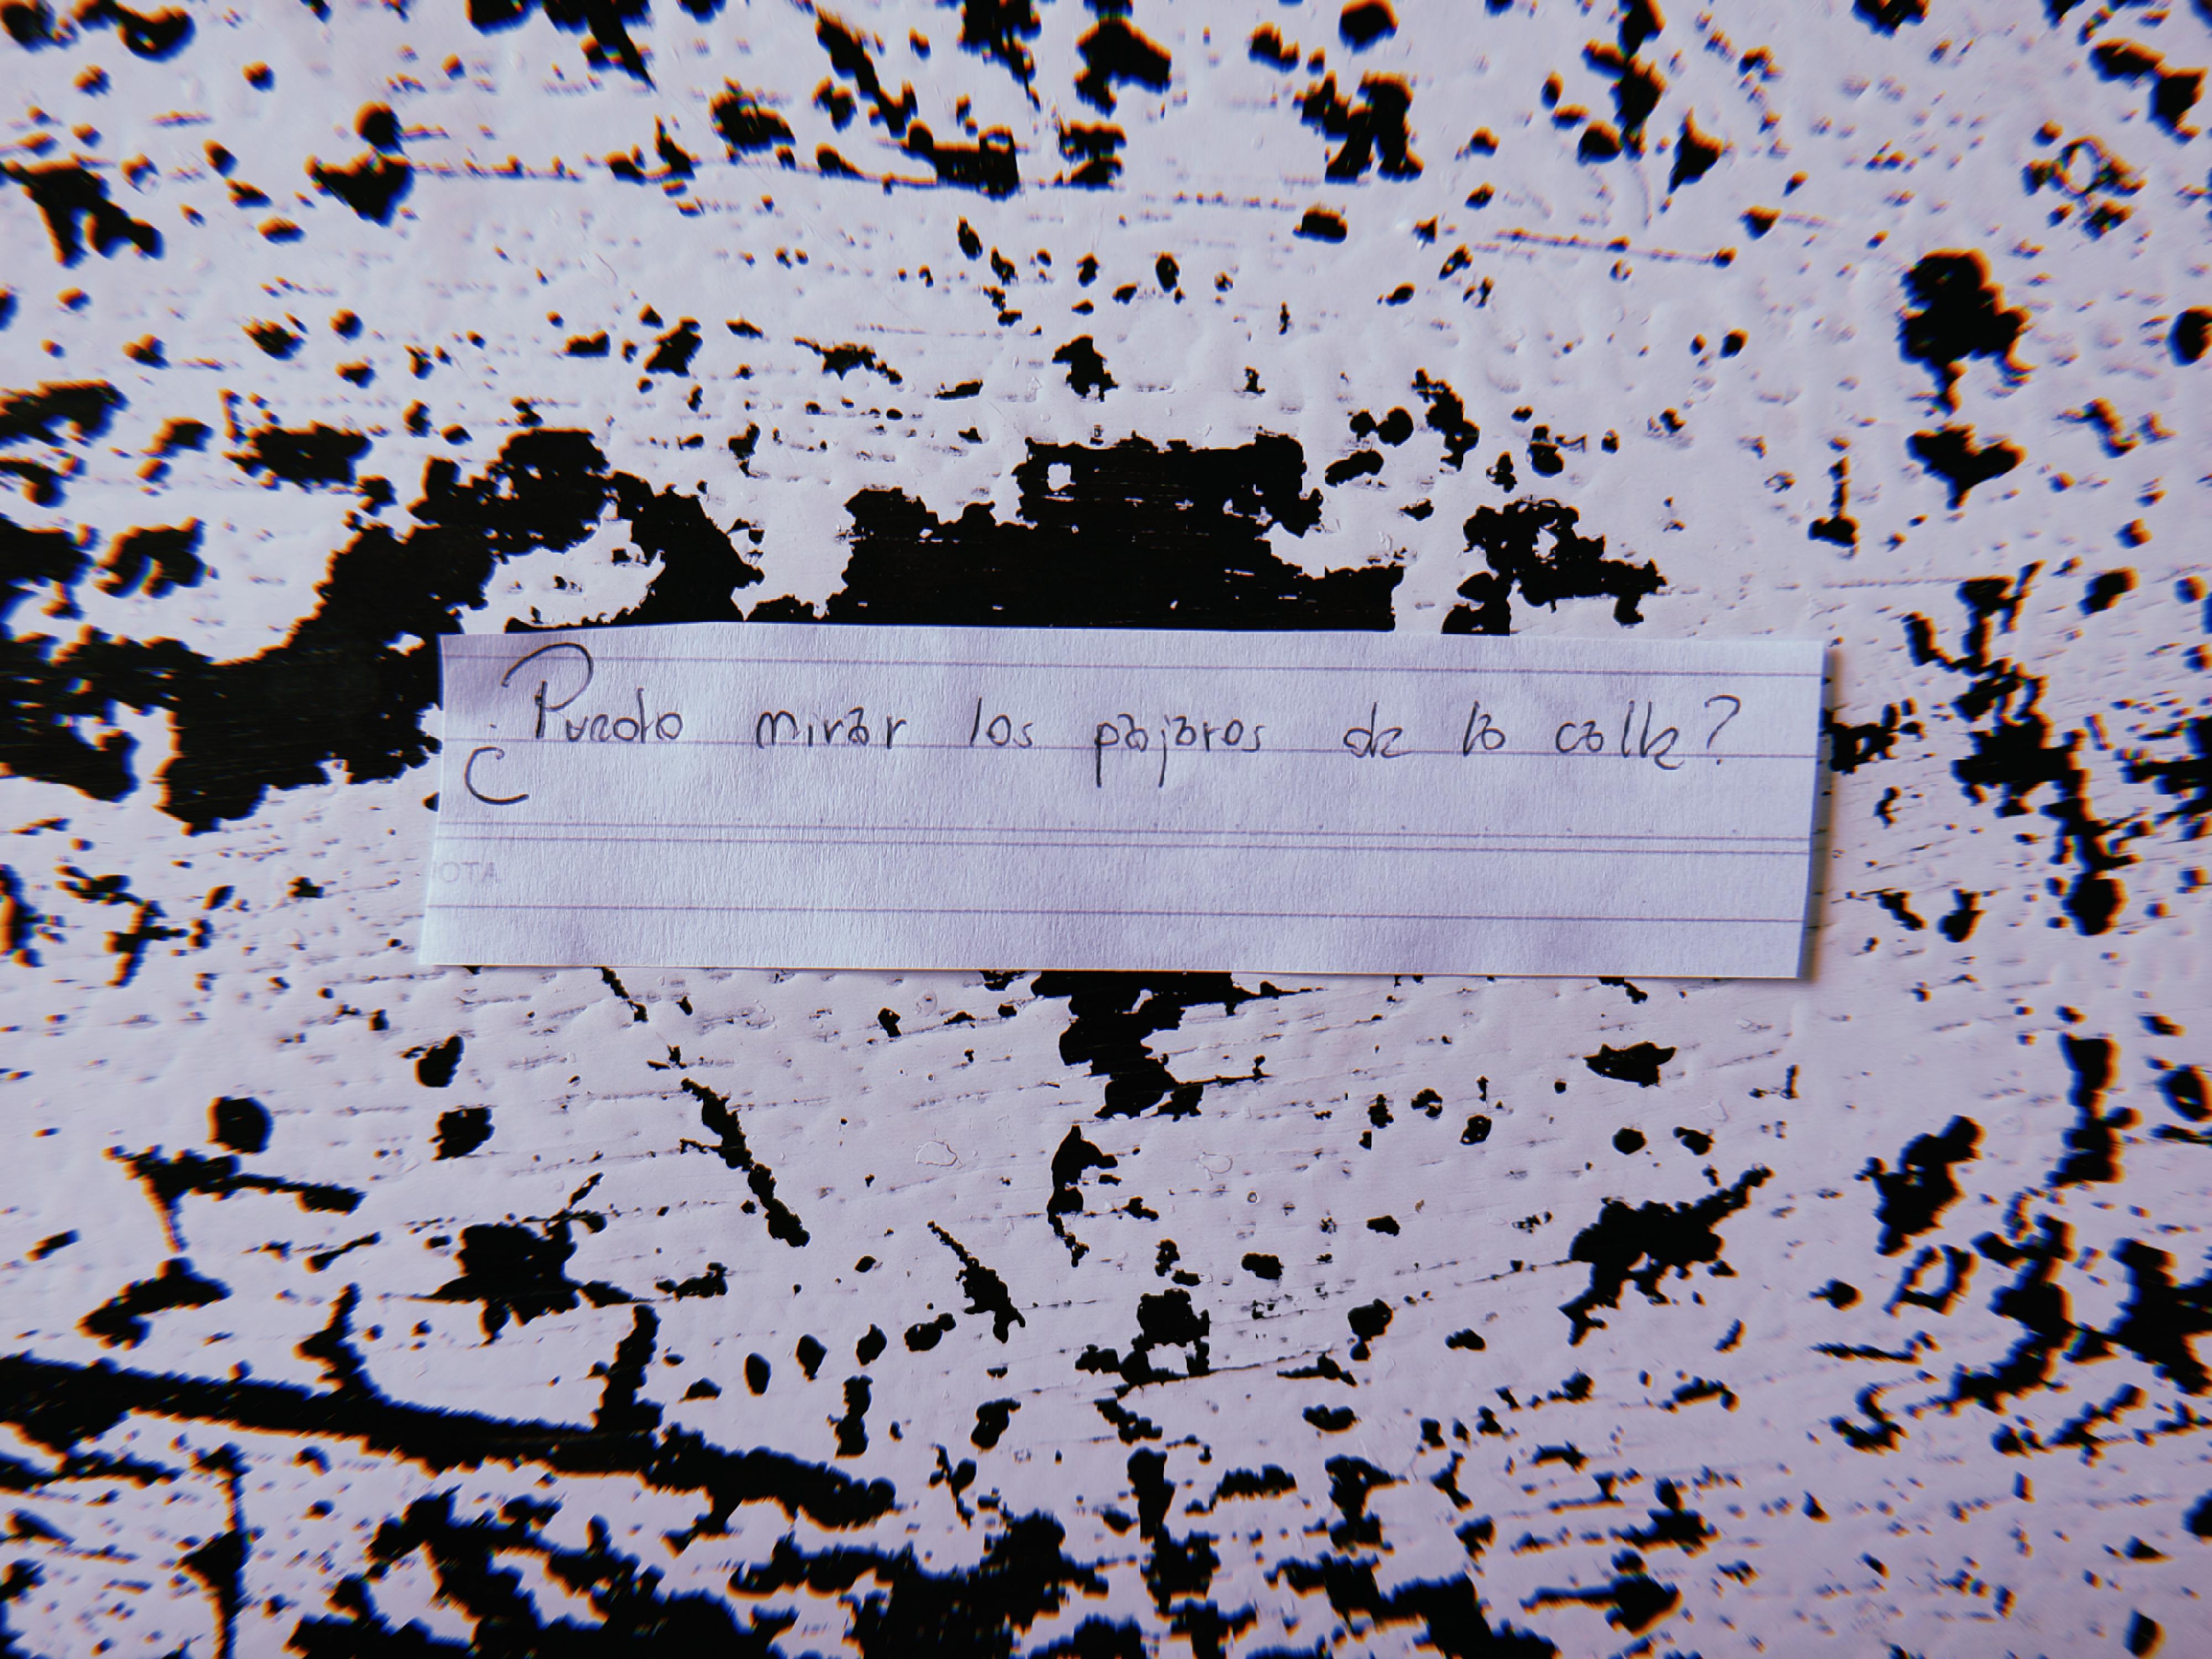 ¿Puedo mirar los pajaros de la calle?